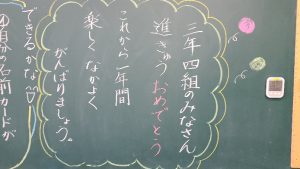 三年四組のみなさん
進きゅうおめでとう
これから一年間
楽しくなかよく
がんばりましょう。
できるかな
④自分の名前カードが